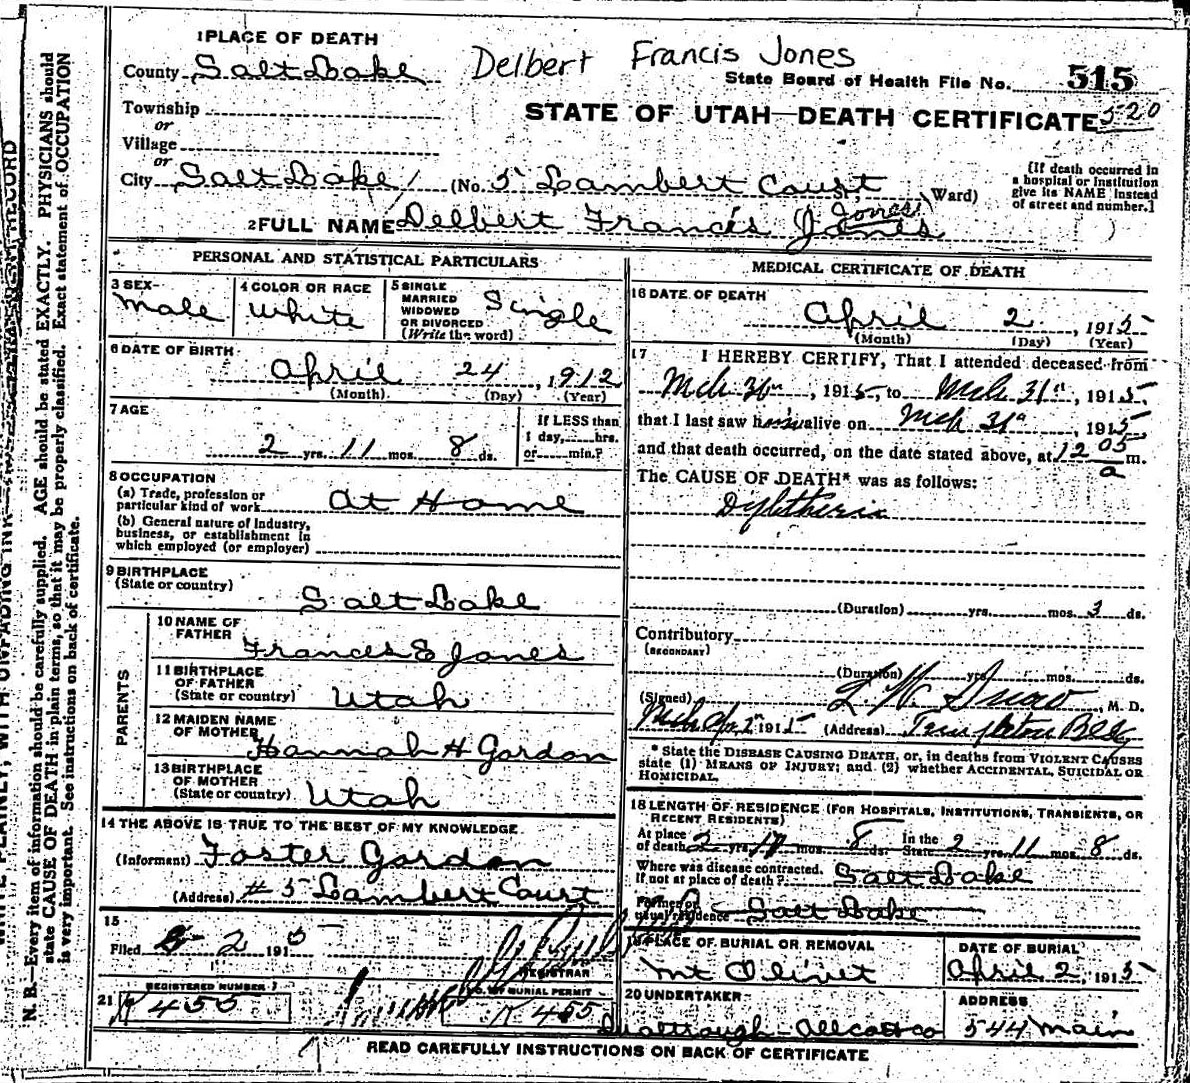 1 PLACE OF DEATH
County Salt Lake
Delbert Francis Jones
State Board of Health File No. 515
Township
or
Village
or
STATE OF UTAH—DEATH CERTIFICATE 520
City Salt Lake (No. 5 Lambert Court, Ward)
[If death occurred in
a hospital or institution
give its NAME instead
of street and number.]
2 FULL NAME Delbert Francis Jones (Jones)
PERSONAL AND STATISTICAL PARTICULARS
3 SEX
Male
4 COLOR OR RACE
White
5 SINGLE
MARRIED
WIDOWED
OR DIVORCED
(Write the word)
Single
6 DATE OF BIRTH
April 24, 1912
(Month) (Day) (Year)
7 AGE
2 yrs. 11 mos. 8 ds.
If LESS than
1 day, hrs.
or min.?
8 OCCUPATION
(a) Trade, profession or
particular kind of work At Home
(b) General nature of Industry,
business, or establishment in
which employed (or employer)
9 BIRTHPLACE
(State or country)
Salt Lake
PARENTS
10 NAME OF
FATHER
Frances E Jones
11 BIRTHPLACE
OF FATHER
(State or country) Utah
12 MAIDEN NAME
OF MOTHER
Hannah H Gordon
13 BIRTHPLACE
OF MOTHER
(State or country) Utah
14 THE ABOVE IS TRUE TO THE BEST OF MY KNOWLEDGE
(Informant) Foster Gordon
(Address) # 5 Lambert Court
15
Filed 2 1915
REGISTRAR
REGISTERED NUMBER
21 K 455
NO. OF BURIAL PERMIT
K 455
MEDICAL CERTIFICATE OF DEATH
16 DATE OF DEATH
April 2, 1915
(Month) (Day) (Year)
17 I HEREBY CERTIFY, That I attended deceased from
Mch 30th, 1915, to Mch 31st, 1915,
that I last saw him alive on Mch 31st, 1915
and that death occurred, on the date stated above, at 12 05 a m.
The CAUSE OF DEATH* was as follows:
Diphtheria
(Duration) yrs. mos. 3 ds.
Contributory
(SECONDARY)
(Duration) yrs. mos. ds.
(Signed) M. D.
Apr 2 1915 (Address) Templeton Bldg
* State the DISEASE CAUSING DEATH, or, in deaths from VIOLENT CAUSES
state (1) MEANS OF INJURY; and (2) whether ACCIDENTAL, SUICIDAL OR
HOMICIDAL.
18 LENGTH OF RESIDENCE (FOR HOSPITALS, INSTITUTIONS, TRANSIENTS, OR
RECENT RESIDENTS)
At place
of death 2 yrs. 11 mos. 8 ds. In the
State 2 yrs. 11 mos. 8 ds.
Where was disease contracted,
if not at place of death? Salt Lake
Former or
usual residence Salt Lake
19 PLACE OF BURIAL OR REMOVAL
Mt Olivet
DATE OF BURIAL
April 2, 1915
20 UNDERTAKER
ADDRESS
544 Main
READ CAREFULLY INSTRUCTIONS ON BACK OF CERTIFICATE
WRITE PLAINLY, WITH UNFADING INK
RECORD
N. B.—Every item of information should be carefully supplied. AGE should be stated EXACTLY. PHYSICIANS should
state CAUSE OF DEATH in plain terms, so that it may be properly classified. Exact statement of OCCUPATION
is very important. See instructions on back of certificate.